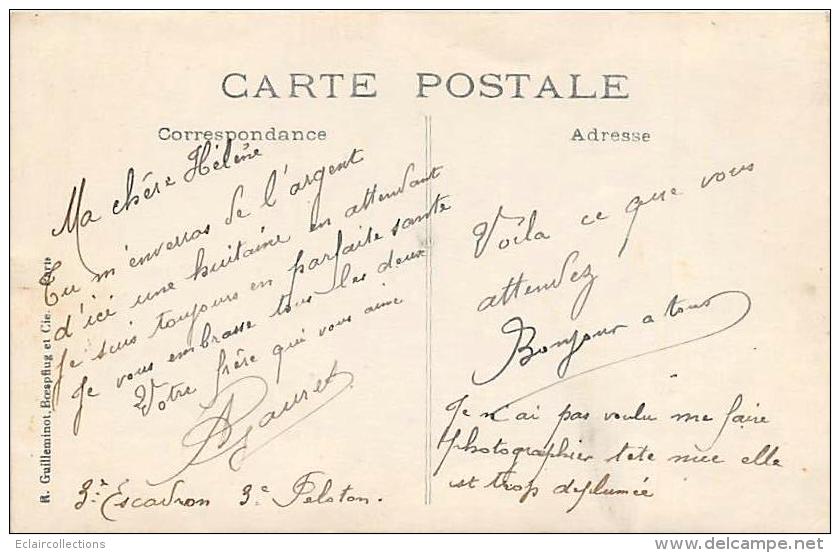 CARTE POSTALE
Correspondance
Adresse
Ma chère Hélène
Tu m'enverras de l'argent
d'ici une huitaine en attendant
Je suis toujours en parfaite santé
Je vous embrasse tous les deux
Votre frère qui vous aime
3e Escadron 3e Peloton.
Voila ce que vous
attendez
Bonjour a tous
Je n'ai pas voulu me faire
photographier tete nue elle
est trop deplumée
R. Guilleminot, Bœspflug et Cie. Paris
Eclaircollections
delcampe.net